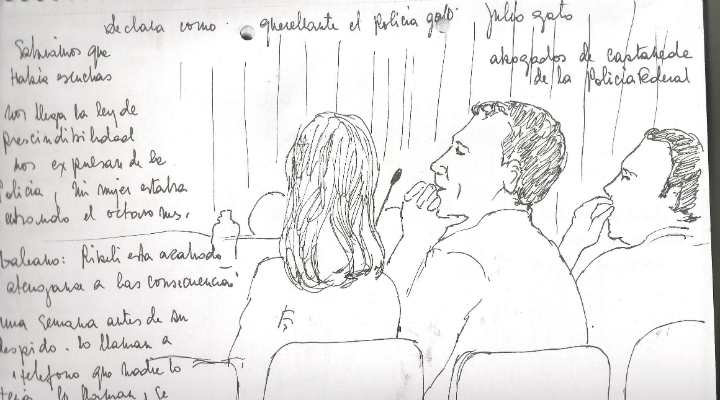 declara como querellante el policía gato. Julio gato
abogados de castañede
de la Policía Federal
Sabíamos que
había escuchas
nos llega la ley de
prescindibilidad
nos expulsan de la
policía, mi mujer estaba
entrando el octavo mes.
esta acabado
atenganse a las consecuencias
una semana antes de su
despido. lo llaman a
telefono que nadie lo
lo llaman, se